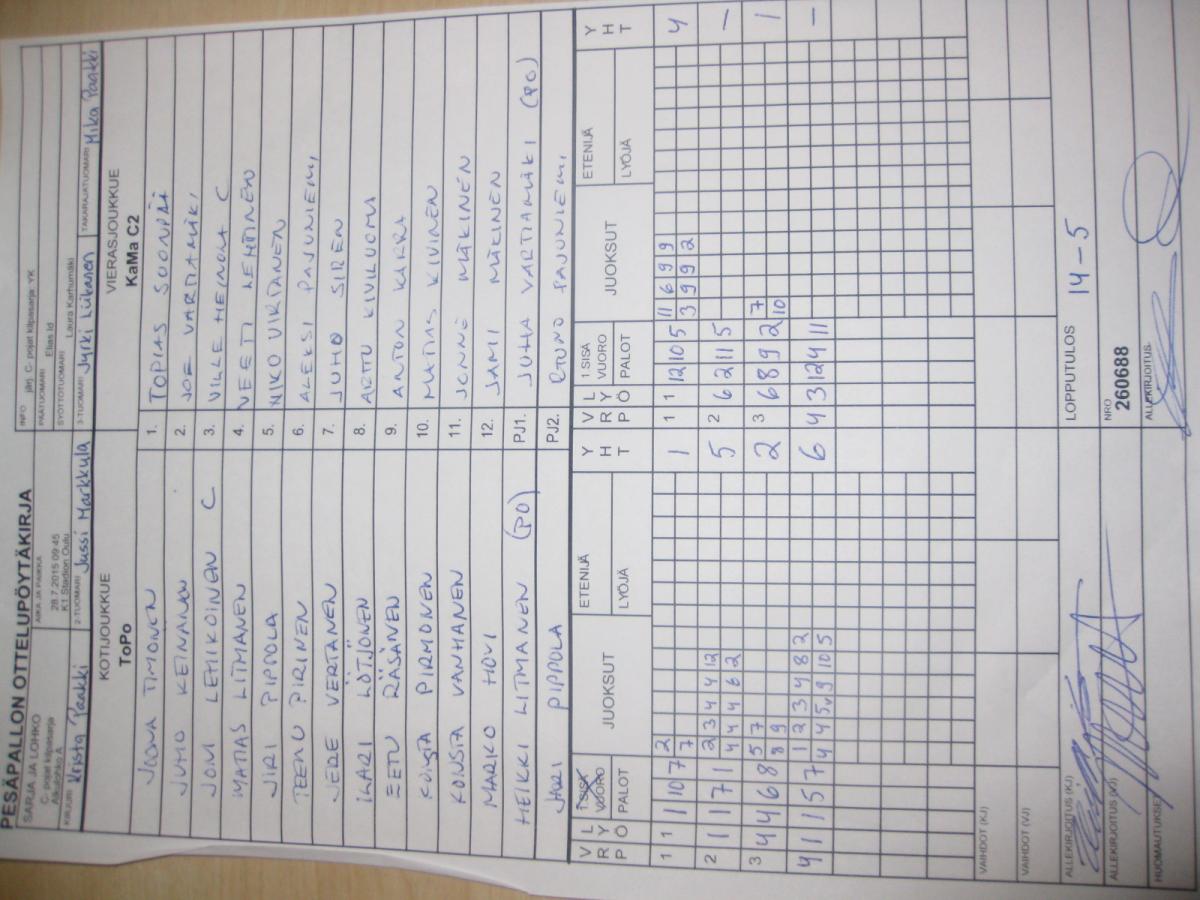 PESÄPALLON OTTELUPÖYTÄKIRJA
SARJA JA LOHKO
C - pojat kilpasarja
Alkulohko A
AIKA JA PAIKKA
28.7.2015 09:45
K1 Stadion Oulu
INFO järj. C- pojat kilpasarja: YK
PÄÄTUOMARI Elias Id
SYÖTTÖTUOMARI Laura Karhumäki
KIRJURI Krista Paakki
2-TUOMARI Jussi Markkula
3-TUOMARI Jyrki Liikanen
TAKARAJATUOMARI Mika Paakki
KOTIJOUKKUE
ToPo
VIERASJOUKKUE
KaMa C2
JOONA TIMONEN 1. TOPIAS SUONPÄÄ
JUHO KEINÄNEN 2. JOE VARTIAMÄKI
JONI LEMIKOINEN C 3. VILLE HEINOLA C
MATIAS LITMANEN 4. VEETI LEHTINEN
JIRI PIPPOLA 5. NIKO VIRTANEN
TEEMU PIRINEN 6. ALEKSI PAJUNIEMI
JERE VERTANEN 7. JUHO SIREN
ILARI LÖTJÖNEN 8. ARTTU KIVILUOMA
EETU RÄSÄNEN 9. ANTON KARRA
PIRMONEN 10. MATIAS KIVINEN
KONSTA VANHANEN 11. JONNE MÄKINEN
MARKO HOVI 12. SAMI MÄKINEN
HEIKKI LITMANEN (PO) PJ1. JUHA VARTIAMÄKI (PO)
JARI PIPPOLA PJ2. PAJUNIEMI
V R P L Y Ö 1.SISÄ VUORO PALOT JUOKSUT ETENIJÄ LYÖJÄ Y H T V R P L Y Ö 1.SISÄ VUORO PALOT JUOKSUT ETENIJÄ LYÖJÄ Y H T
1 1 1 10 7 2 7 1 1 1 12 10 5 11 6 9 9 3 9 9 2 4
2 1 1 7 1 2 3 4 4 12 4 4 4 6 2 5 2 6 2 11 5 –
3 4 4 6 8 5 7 8 9 2 3 6 8 9 2 7 10 1
4 1 1 5 7 1 2 3 4 8 2 4 4 5 9 10 5 6 4 3 12 4 11 –
VAIHDOT (KJ)
VAIHDOT (VJ)
ALLEKIRJOITUS (KJ)
LOPPUTULOS 14-5
ALLEKIRJOITUS (VJ)
NRO
260688
HUOMAUTUKSET
ALLEKIRJOITUS